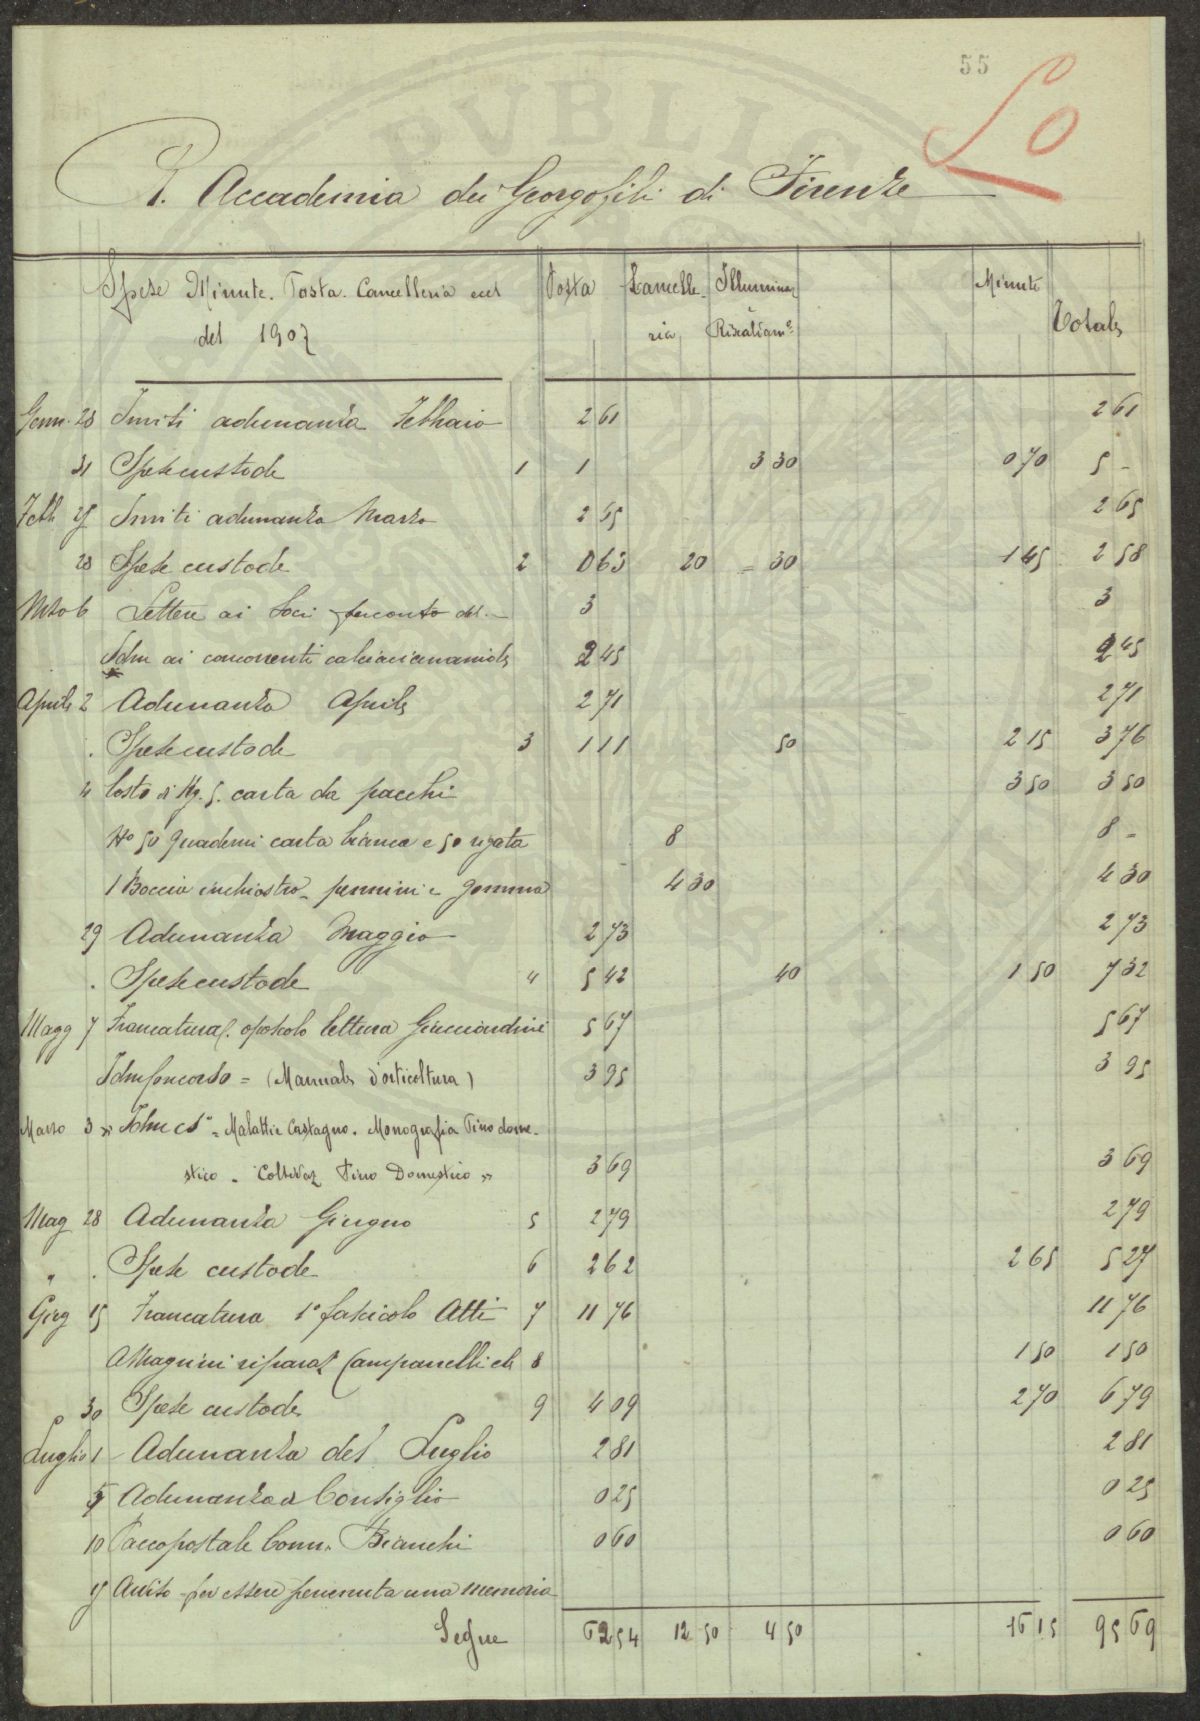 55
50
R. Accademia dei Georgofili di Firenze
Spese Minute. Posta. Cancelleria ecct Posta Cancelle- Illuminaz Minute
del 1907 ria Riscaldam° Totale
Genn. 28 Inviti adunanza Febbraio 2 61 2 61
31 Spese custode 1 1 3 30 0 70 5 -
Febb 25 Inviti adunanza Marzo 2 65 2 65
28 Spese custode 2 0 63 20 = 30 1 45 2 58
Mzo 6 Lettere ai Soci 3 3
Idm ai concorrenti 2 45 2 45
Aprile 2 Adunanza Aprile 2 71 2 71
. Spese custode 3 1 11 50 2 15 3 76
4 Costo di Kg. 5. carta da pacchi 3 50 3 50
N° 50 quaderni carta bianca e 50 rigata 8 8 -
1 Boccia inchiostro - pennini e gomma 4 30 4 30
29 Adunanza Maggio 2 73 2 73
. Spese custode 4 5 42 40 1 50 7 32
Magg 7 Francatura opuscolo lettura Guicciardini 5 67 5 67
Idm Concorso = (Manuale d'orticoltura) 3 95 3 95
Marzo 3 » Idm cs° = Malattie Castagno. Monografia Pino dome-
stico - Coltivaz Pino Domestico » 3 69 3 69
Mag 28 Adunanza Giugno 5 2 79 2 79
" . Spese custode 6 2 62 2 65 5 27
Giug 15 Francatura 1° fascicolo Atti 7 11 76 11 76
A Magnini riparaz Campanelli elt 8 1 50 1 50
30 Spese custode 9 4 09 2 70 6 79
Luglio 1 Adunanza del Luglio 2 81 2 81
5 Adunanza d Consiglio 0 25 0 25
10 Pacco postale Comm. Bianchi 0 60 0 60
Avviso per essere pervenuta una memoria
Segue 62 54 12 50 4 50 16 15 95 69